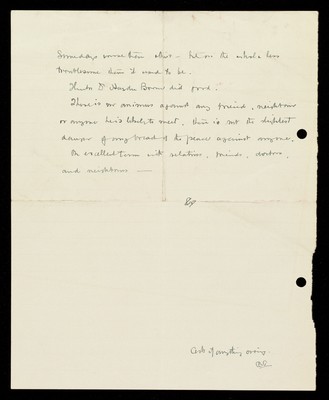 Some days worse than others - but on the whole less
troublesome than it used to be.
Thinks Dr Haydn Brown did good.
There is no animus against any friend, neighbour
or anyone he is likely to meet, there is not the slightest
danger of any breach of the peace against anyone.
On excellent terms with relatives, friends, doctors,
and neighbours —